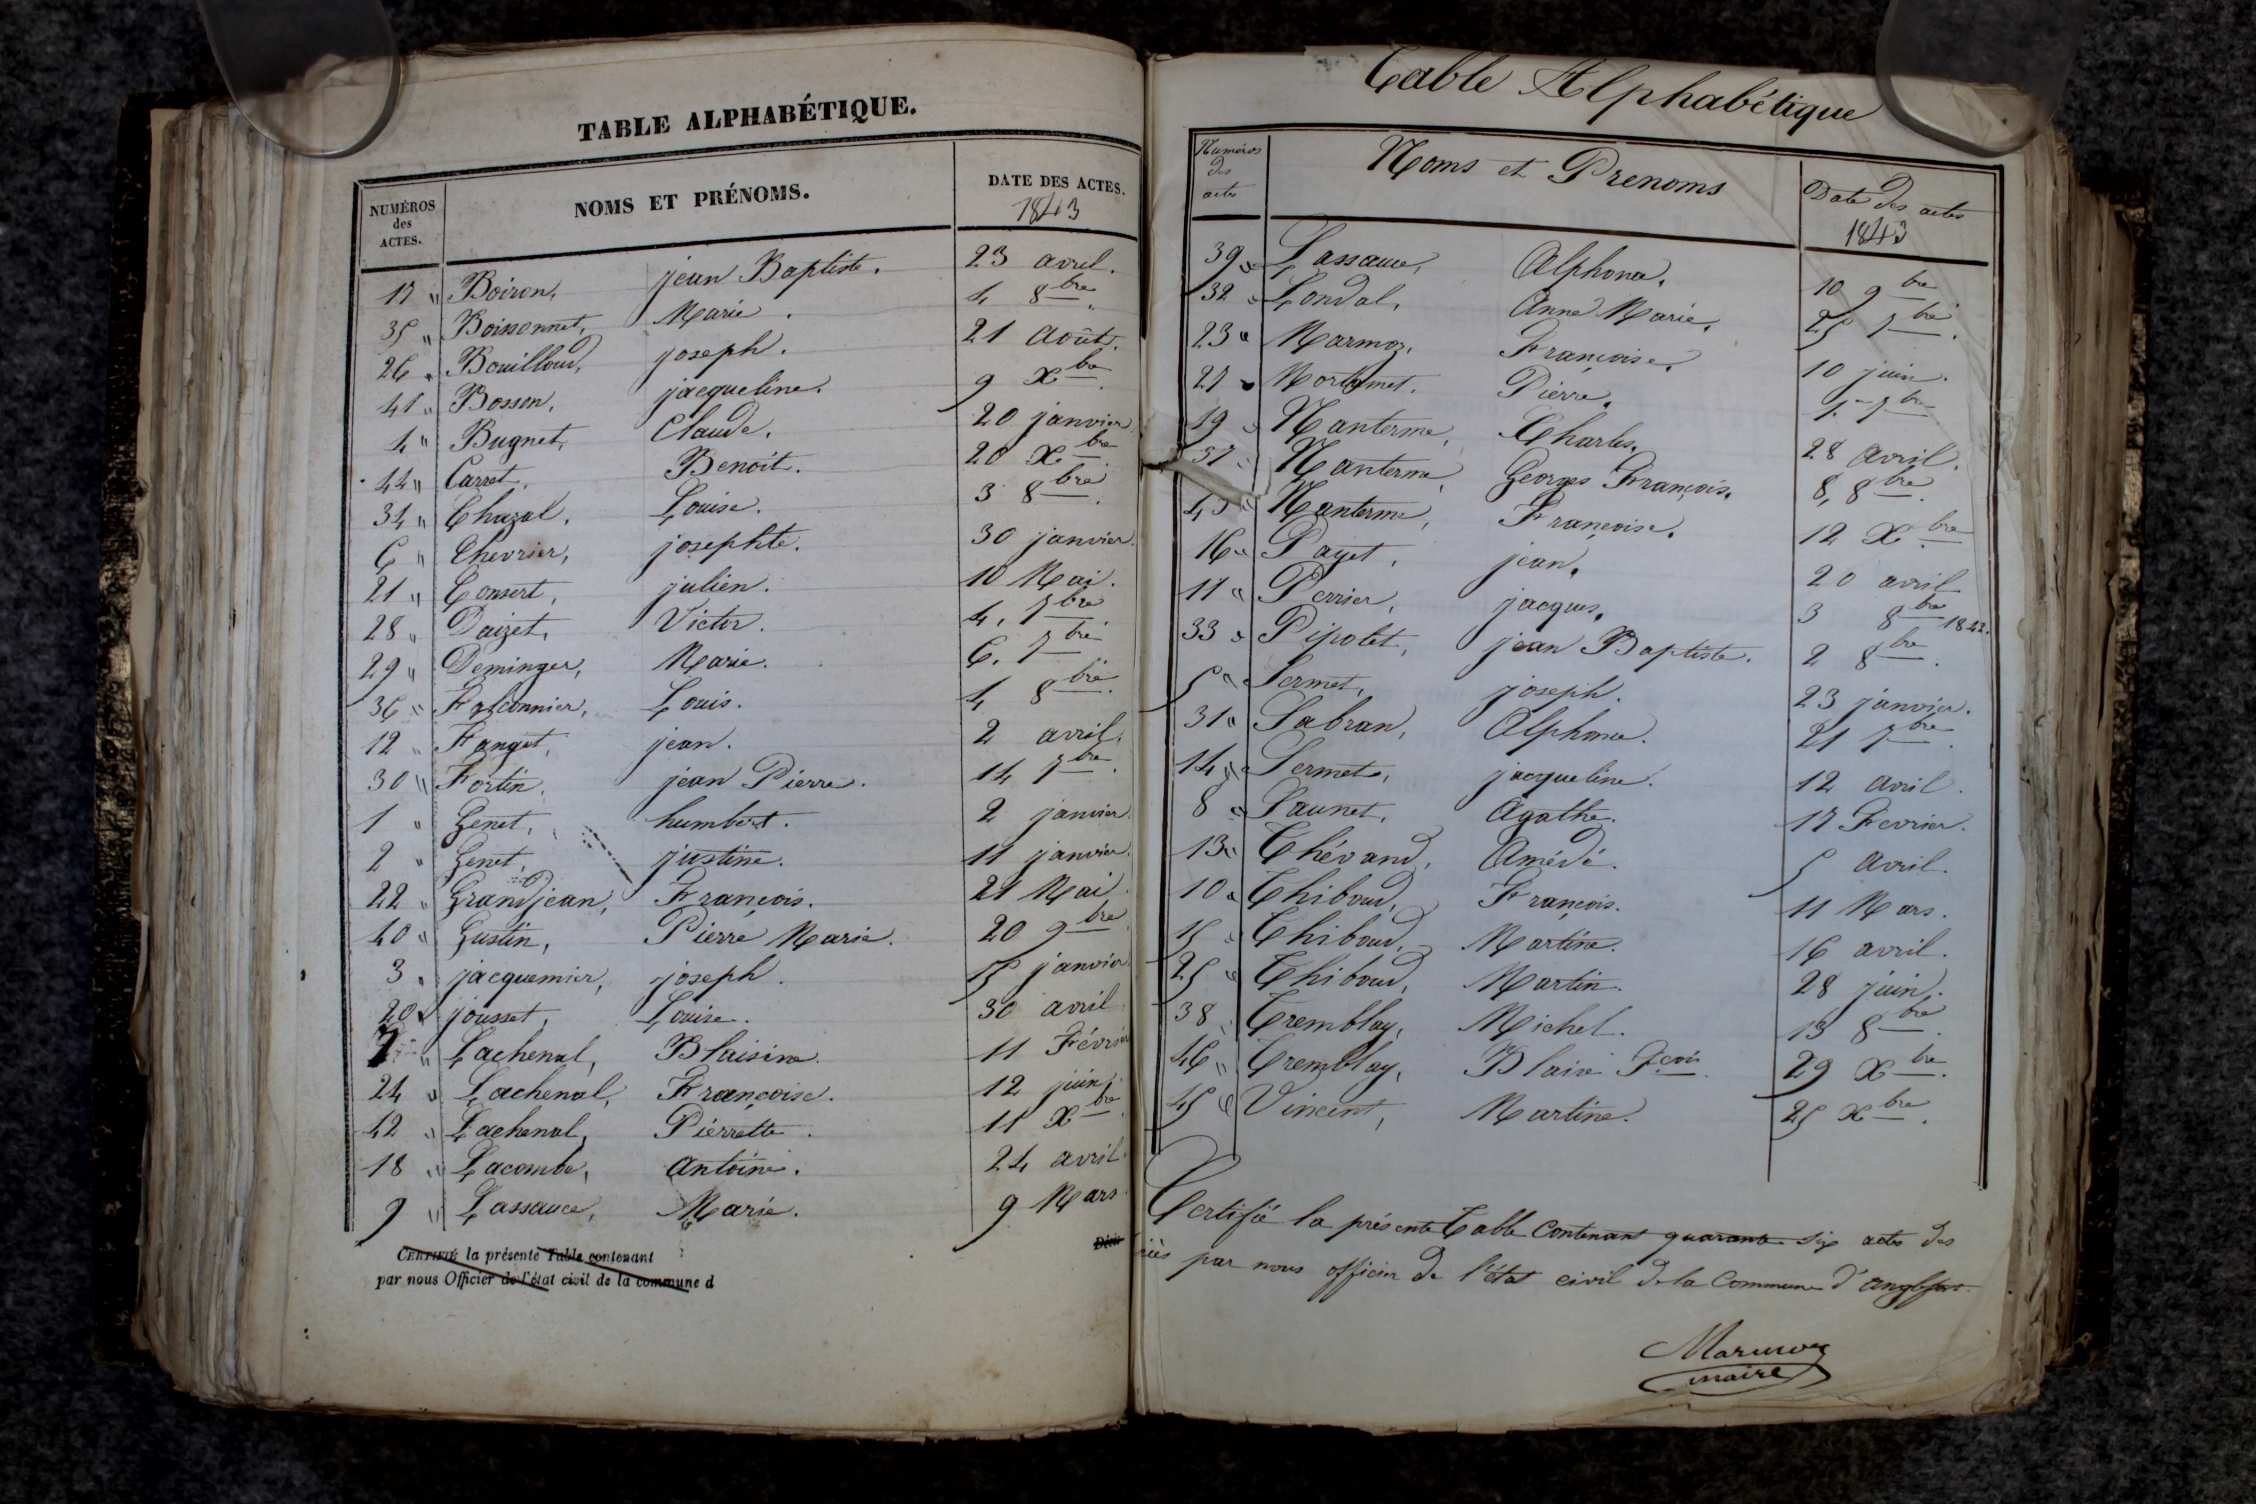 TABLE ALPHABÉTIQUE.
NUMÉROS des ACTES. NOMS ET PRÉNOMS. DATE DES ACTES. 1843
17 " Boiron, jean Baptiste. 23 avril.
35 " Boissonnet, Marie. 4 8bre.
26 " Bouilloud, joseph. 21 Août.
41 " Bosson, jacqueline. 9 Xbre.
4 " Bugnet, Claude. 20 janvier
44 " Carret, Benoit. 20 Xbre.
34 " Chazal, Louise. 3 8bre.
6 " Chevrier, josephte. 30 janvier.
21 " Consert, julien. 10 Mai.
28 " Daizet, Victor. 4, 7bre
29 " Deminger, Marie. 6. 7bre
36 " Falconnier, Louis. 4 8bre.
12 " Fanget, jean. 2 avril.
30 " Fortin, jean Pierre. 14 7bre.
1 " Genet, humbert. 2 janvier
2 " Genet, justine. 11 janvier.
22 " Grandjean, François. 21 Mai.
40 " Gustin, Pierre Marie. 20 9bre
3 " jacquemier, joseph. 15 janvier
20 " jousset, Louise. 30 avril
7 " Lachenal, Blaisine. 11 Février
24 " Lachenal, Françoise. 12 juin.
42 " Lachenal, Pierrette. 11 Xbre.
18 " Lacombe, Antoine. 24 avril
9 " Lassauce, Marie. 9 Mars
CERTIFIÉ la présente Table contenant
par nous Officier de l'état civil de la commune d
Table Alphabétique
Numéros des actes Noms et Prenoms Date des actes 1843
39 " Lassauce, Alphonse. 10 9bre
32 " Londal, Anne Marie. 25 7bre.
23 " Marmoz, Françoise. 10 juin.
27 " Pierre. 1er 7bre
19 " Nanterme, Charles. 28 avril.
37 " Nanterme, Georges François. 8, 8bre.
43 " Nanterme, Françoise. 12 Xbre
16 " Payet, jean. 20 avril
11 " Perrier, jacques. 3 8bre 1842.
33 " Pipolet, jean Baptiste. 2 8bre.
5 " Sermet, joseph. 23 janvier.
31 " Sabran, Alphonse. 21 7bre.
14 " Sermet, jacqueline. 12 avril.
8 " Saunet, Agathe. 17 Fevrier.
13 " Thévand, Amédé. 5 avril.
10 " Thiboud, François. 11 Mars.
15 " Thiboud, Martine. 16 avril.
25 " Thiboud, Martin. 28 juin.
38 " Tremblay, Michel. 13 8bre.
46 " Tremblay, Blaise Fçois. 29 Xbre.
45 " Vincent, Martine. 25 Xbre.
Certifié la présente Table Contenant quarante six actes des
par nous officier de l'état civil de la Commune d'anglefort.
Marmoz
maire